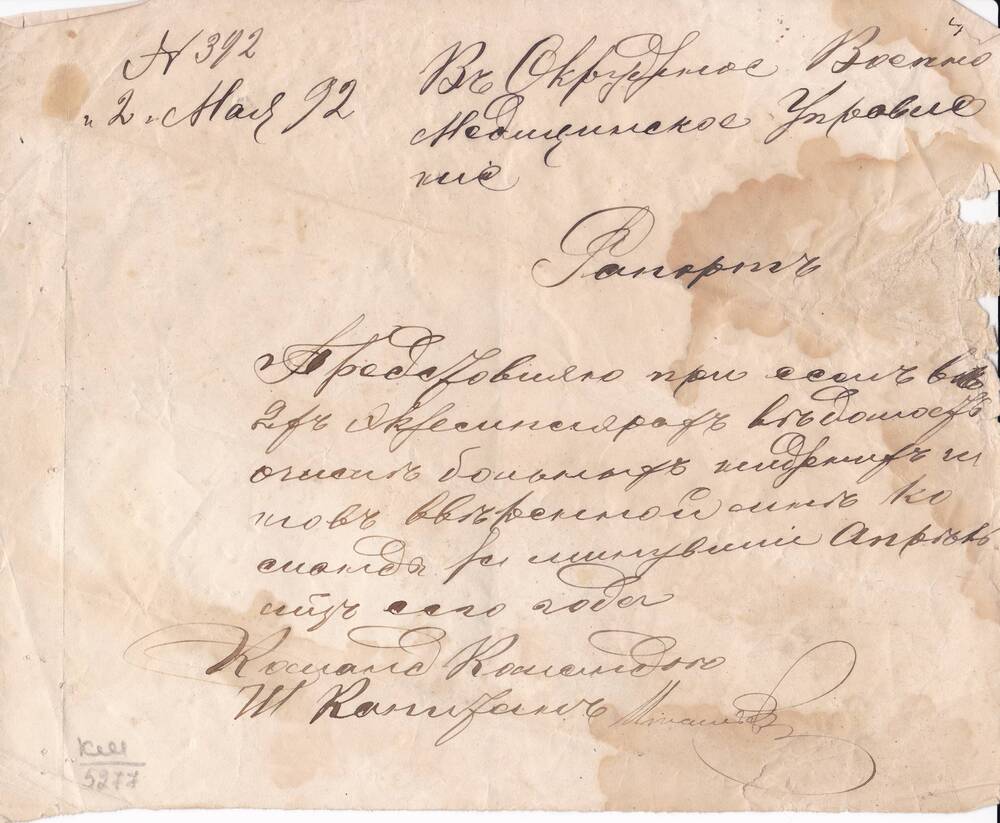 № 392
"2" Мая 92
Въ Окружное Военно
Медицинское Управле
ніе
Рапортъ
Представляю при семъ въ
2хъ экземплярахъ вѣдомость
о числѣ больныхъ нижнихъ чи
новъ ввѣренной мнѣ ко
манды за минувшій Апрѣль
мцъ сего года
Команд Командою
Ш Капитанъ
КМ
5277